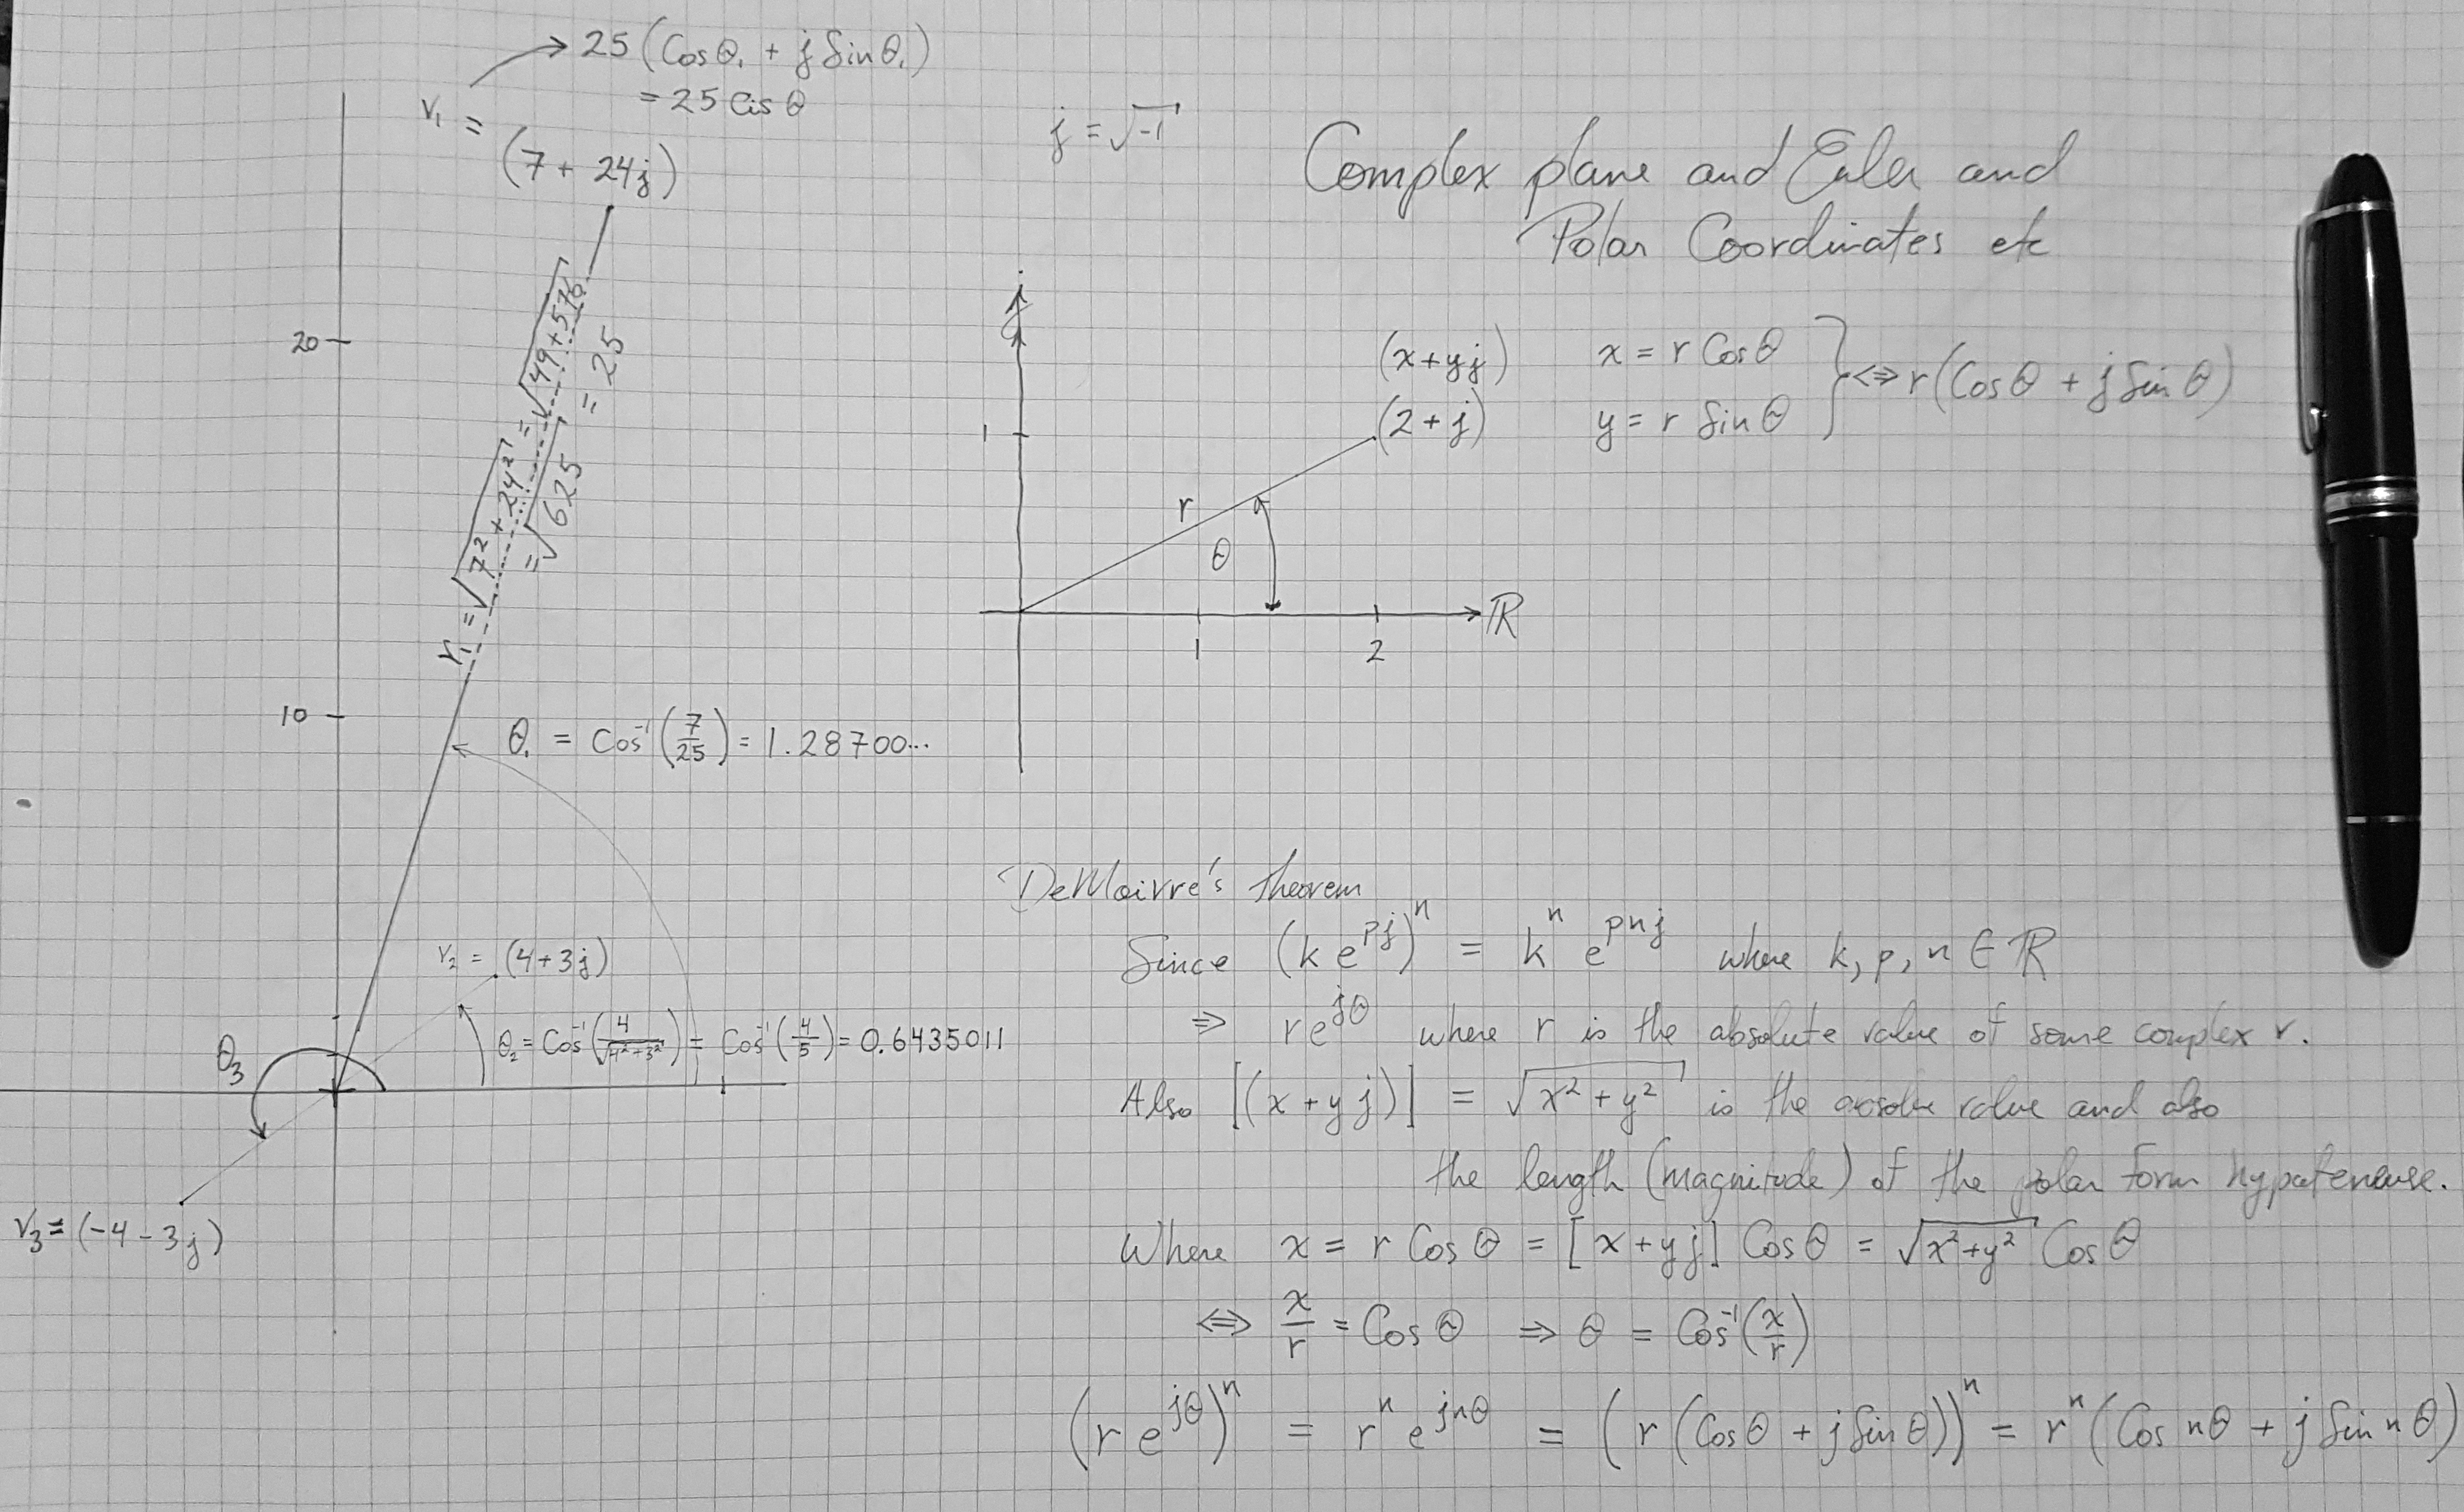 25 (Cosθ₁ + j Sinθ₁)
= 25 Cis θ
r₁ =
(7 + 24j)
j = √-1
Complex plane and Euler and
Polar Coordinates etc
20
r₁ = √7² + 24² = √49 + 576
= √625 = 25
10
θ₁ = Cos⁻¹(7/25) = 1.28700...
r₂ = (4+3j)
θ₂ = Cos⁻¹(4/√4²+3²) = Cos⁻¹(4/5) = 0.6435011
θ₃
r₃ = (-4 - 3j)
j
(x+yj) x = r Cosθ
(2+j) y = r Sinθ
} ⇔ r(Cosθ + j Sinθ)
1
r
θ
ℝ
1 2
DeMoivre's theorem
Since (k e^pj)^n = k^n e^pnj where k, p, n ∈ ℝ
⇒ re^jθ where r is the absolute value of some complex r.
Also [(x + y j)] = √x² + y² is the value and also
the length (magnitude) of the polar form hypotenuse.
Where x = r Cos θ = [x+yj] Cosθ = √x²+y² Cosθ
⇔ x/r = Cos θ ⇒ θ = Cos⁻¹(x/r)
(r e^jθ)^n = r^n e^jnθ = (r (Cosθ + j Sinθ))^n = r^n (Cos nθ + j Sin nθ)